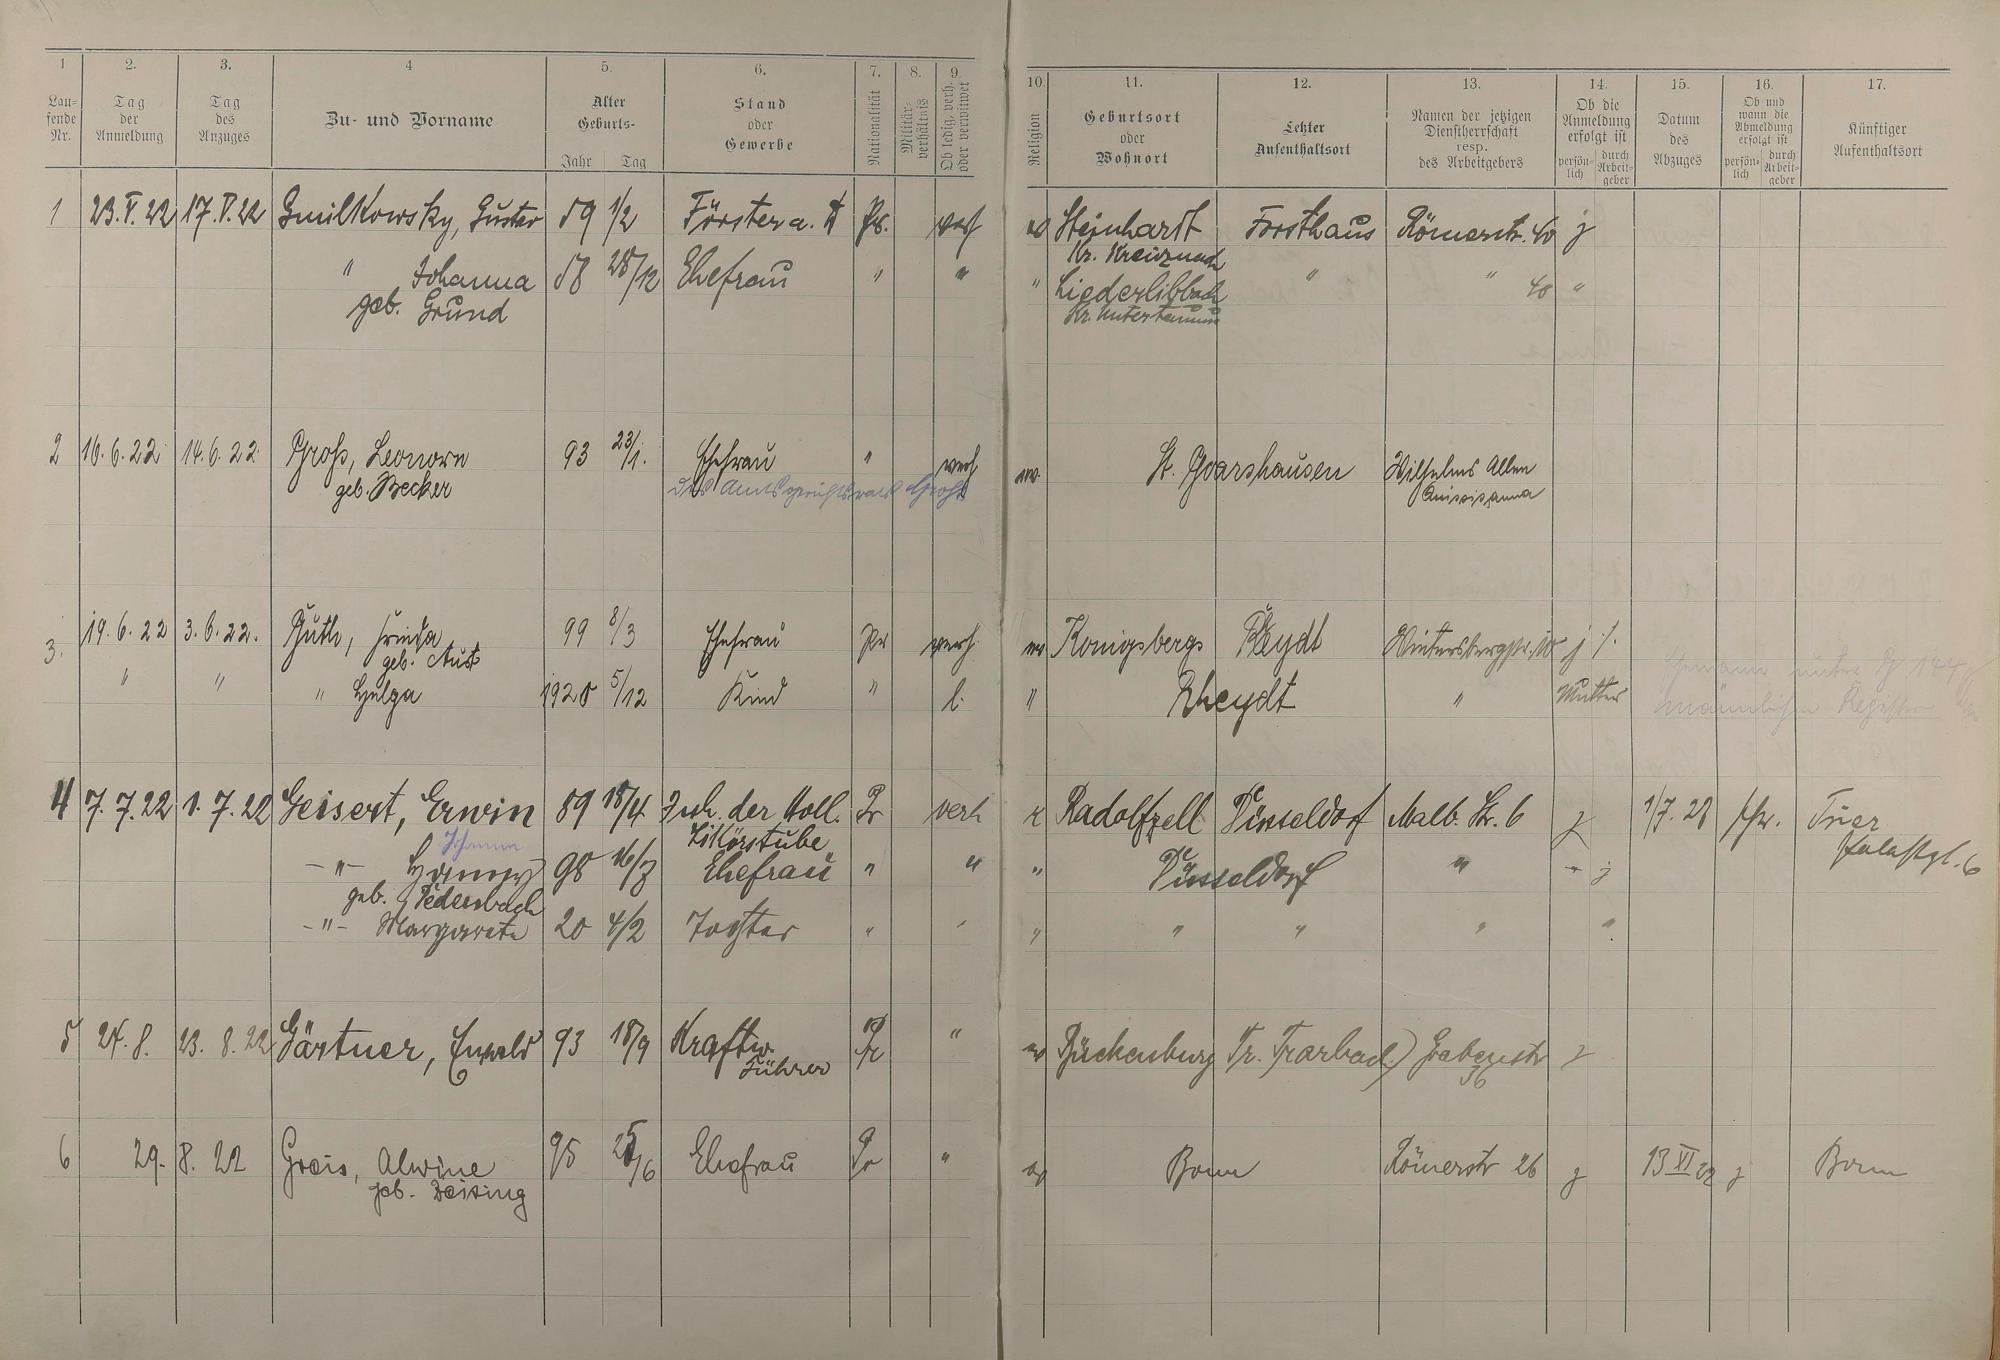 1 2. 3. 4 5. 6. 7. 8. 9. 10. 11. 12. 13. 14. 15. 16. 17.
Lau-
fende
Nr.
Tag
der
Anmeldung
Tag
des
Anzuges
Zu- und Vorname
Alter
Geburts-
Jahr Tag
Stand
oder
Gewerbe
Nationalität
Militär-
verhältnis
Ob ledig, verh.
oder verwitwet
Religion
Geburtsort
oder
Wohnort
Letzter
Aufenthaltsort
Namen der jetzigen
Dienstherrschaft
resp.
des Arbeitgebers
Ob die
Anmeldung
erfolgt ist
persön-
lich
durch
Arbeit-
geber
Datum
des
Abzuges
Ob und
wann die
Abmeldung
erfolgt ist
persön-
lich
durch
Arbeit-
geber
Künftiger
Aufenthaltsort
1 23.V.22 17.V.22 Smilkowsky, Gustav 59 1/2 Förster a. D Pr. verh ev Steinhardt Forsthaus Römerstr. 40 j
Kr. Kreuznach
" Johanna 58 28/12 Ehefrau " " " Liederlibbach " " 40 "
geb. Grund Kr. Untertaunus
2 16.6.22 14.6.22 Groß, Leonore 93 23/1. Ehefrau " verh ev. St. Goarshausen Wilhelms Allee
geb. Becker des Amtsgerichtsrat Groß
3. 19.6.22 3.6.22. Guth, Frieda 99 8/3 Ehefrau Pr verh. ev Königsberg Rheydt Wintersbergstr. 10 j
geb. Aust
" " " Helga 1920 5/12 Kind " l. " Rheydt " Mutter
männlichen Register
4 7.7.22 1.7.22 Geisert, Erwin 89 18/4 Inh. der Holl. Pr verh k Radolfzell Düsseldorf Malb. Str. 6 j 1/7.28 Trier
Likörstube
Johanna
-"- 98 16/3 Ehefrau " " " Düsseldorf " - j
geb. Pedersbach
-"- Margarete 20 4/2 Tochter " " " " " "
5 24.8. 23.8.22 Gärtner, Ewald 93 18/9 Kraftw. Pr " ev Bückenburg Tr. Trarbach Grabenstr j
Führer 36
6 29.8.22 Greis, Alwine 95 25/6 Ehefrau Pr " ev Bonn Römerstr 26 j 13 XI 22 j Bonn
geb. Deising